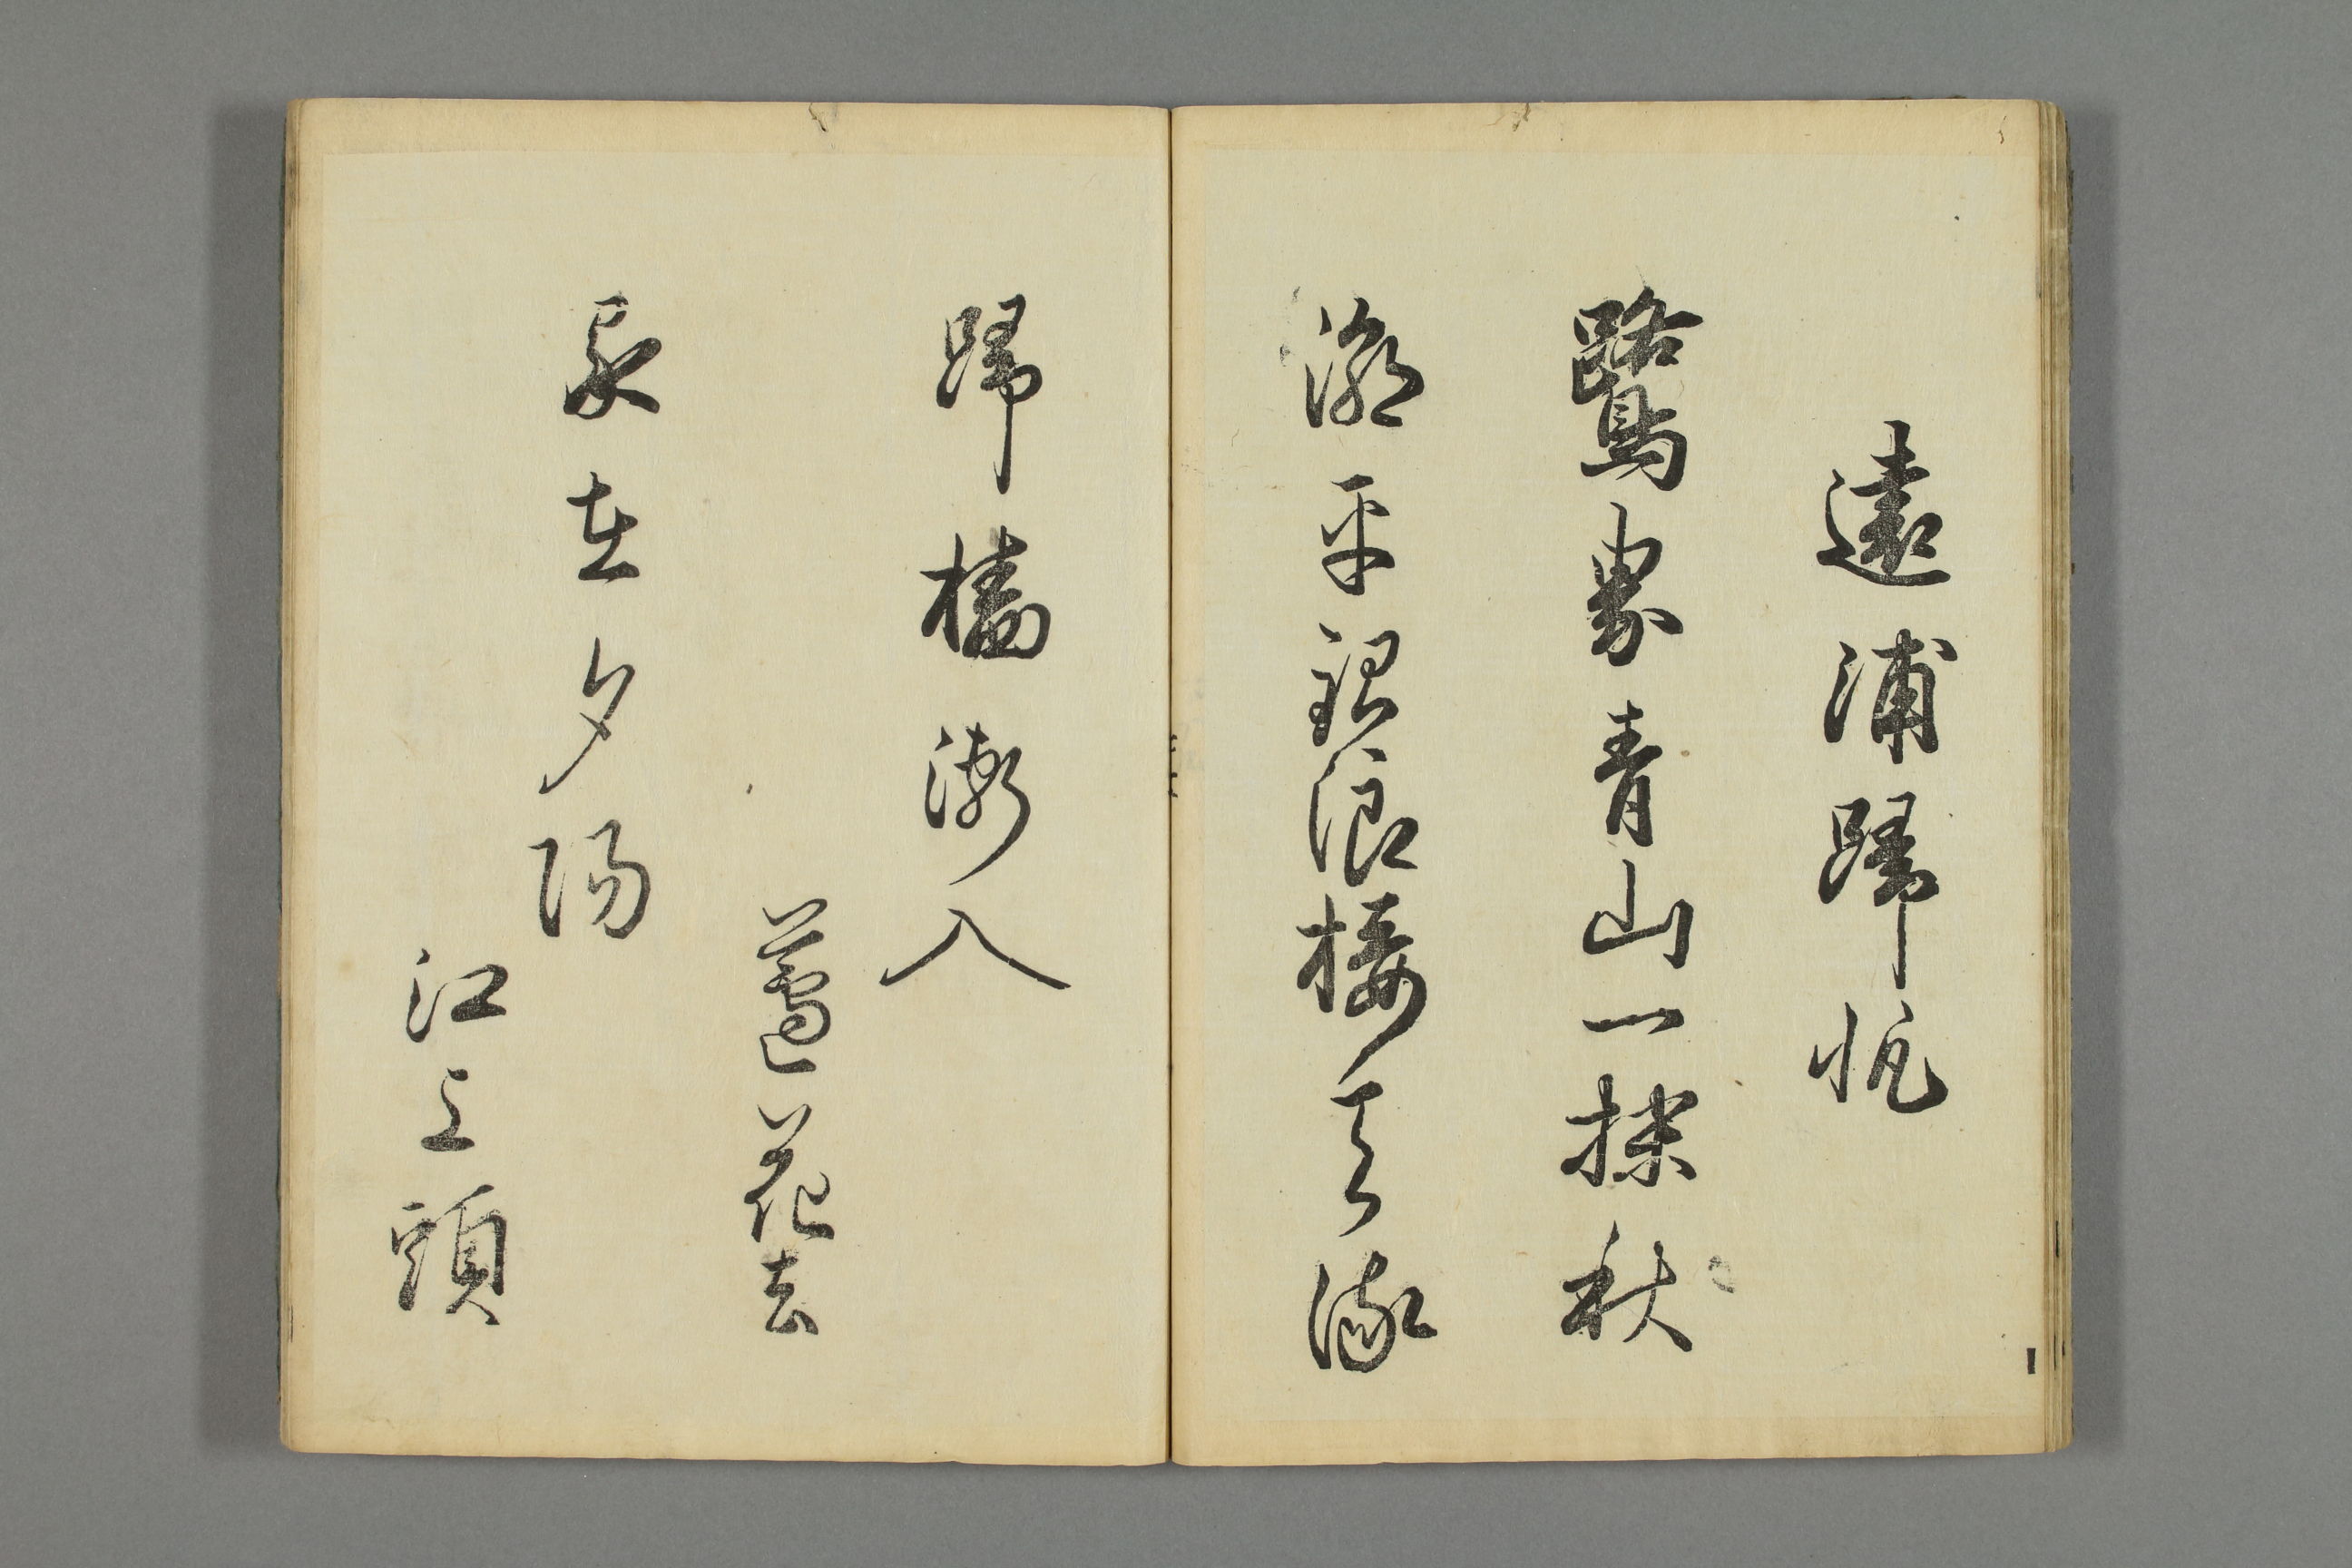 遠浦歸帆
鷺界青山一抹秋
潮平銀浪接天流
歸檣漸入
蘆花去
家在夕陽
江上頭